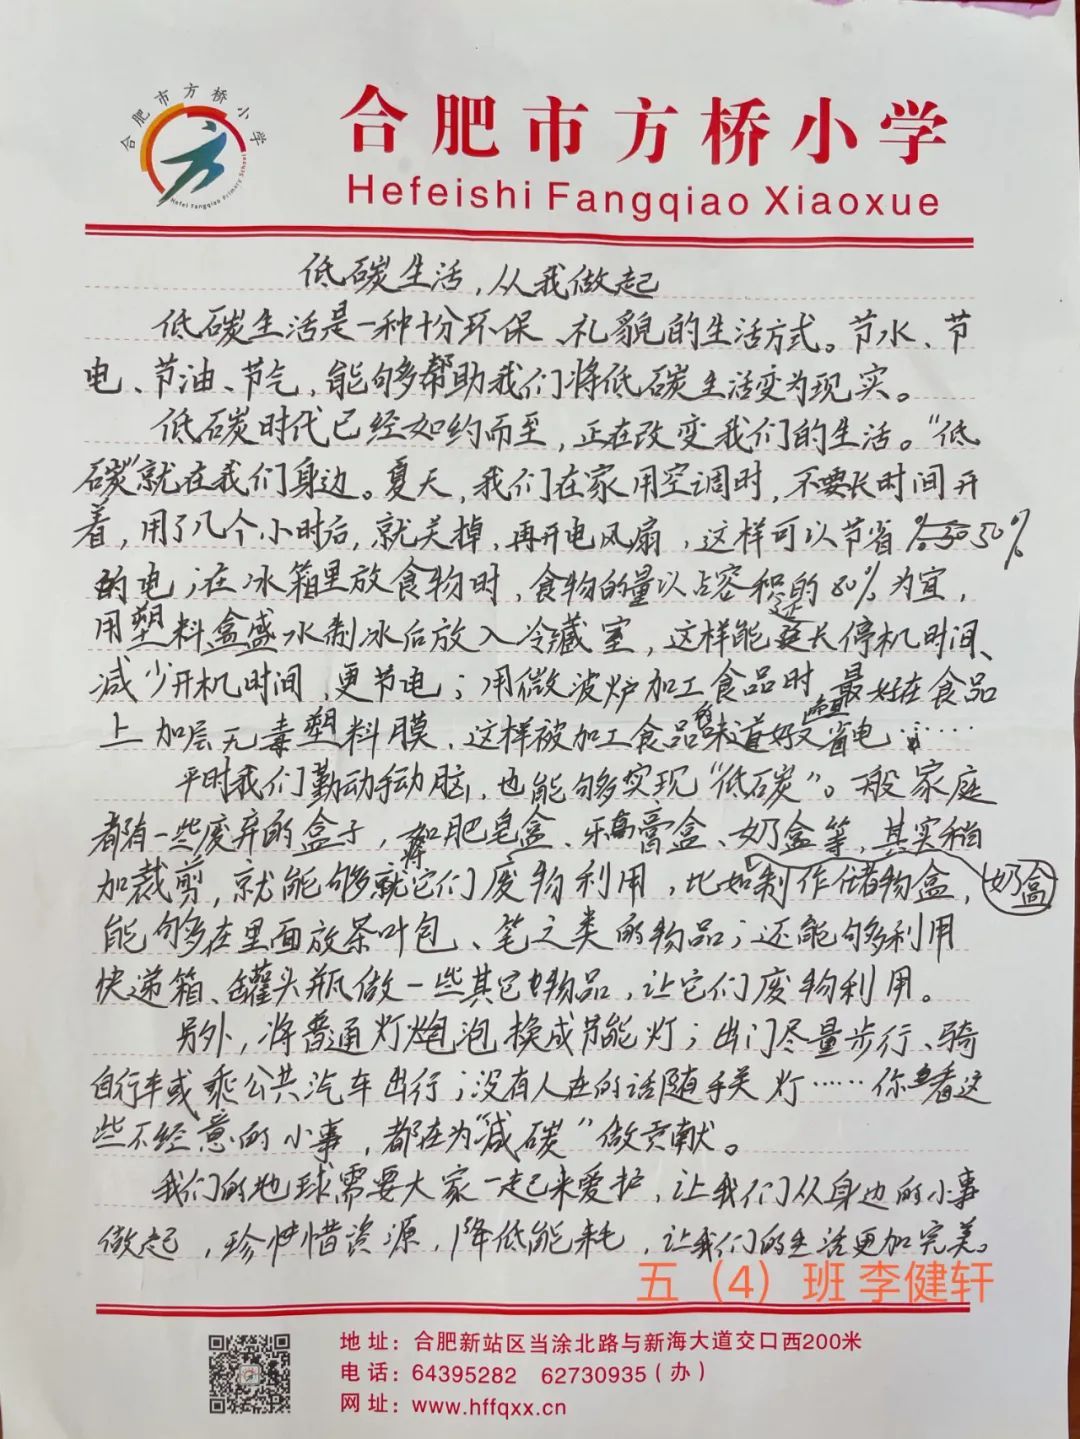 合肥市方桥小学
Hefei Fangqiao Primary School
合肥市方桥小学
Hefeishi Fangqiao Xiaoxue
低碳生活，从我做起
低碳生活是一种十分环保、礼貌的生活方式。节水、节
电、节油、节气，能够帮助我们将低碳生活变为现实。
低碳时代已经如约而至，正在改变我们的生活。“低
碳”就在我们身边。夏天，我们在家用空调时，不要长时间开
着，用了几个小时后，就关掉，再开电风扇，这样可以节省50%
的电；在冰箱里放食物时，食物的量以占容积的80%为宜，
用塑料盒盛水制冰后放入冷藏室，这样能延长停机时间、
减少开机时间，更节电；用微波炉加工食品时，最好在食品
上加层无毒塑料膜，这样被加工食品味道好又省电……
平时我们勤动手动脑，也能够实现“低碳”。一般家庭
都有一些废弃的盒子，如肥皂盒、牙膏盒、奶盒等，其实稍
加裁剪，就能够将它们废物利用，比如制作储物盒，奶盒
能够在里面放茶叶包、笔之类的物品；还能够利用
快递箱、罐头瓶做一些其它物品，让它们废物利用。
另外，将普通灯泡换成节能灯；出门尽量步行、骑
自行车或乘公共汽车出行；没有人在的话随手关灯……你看这
些不经意的小事，都在为“减碳”做贡献。
我们的地球需要大家一起来爱护，让我们从身边的小事
做起，珍惜资源，降低能耗，让我们的生活更加完美。
五（4）班 李健轩
地址：合肥新站区当涂北路与新海大道交口西200米
电话：64395282 62730935（办）
网址：www.hffqxx.cn